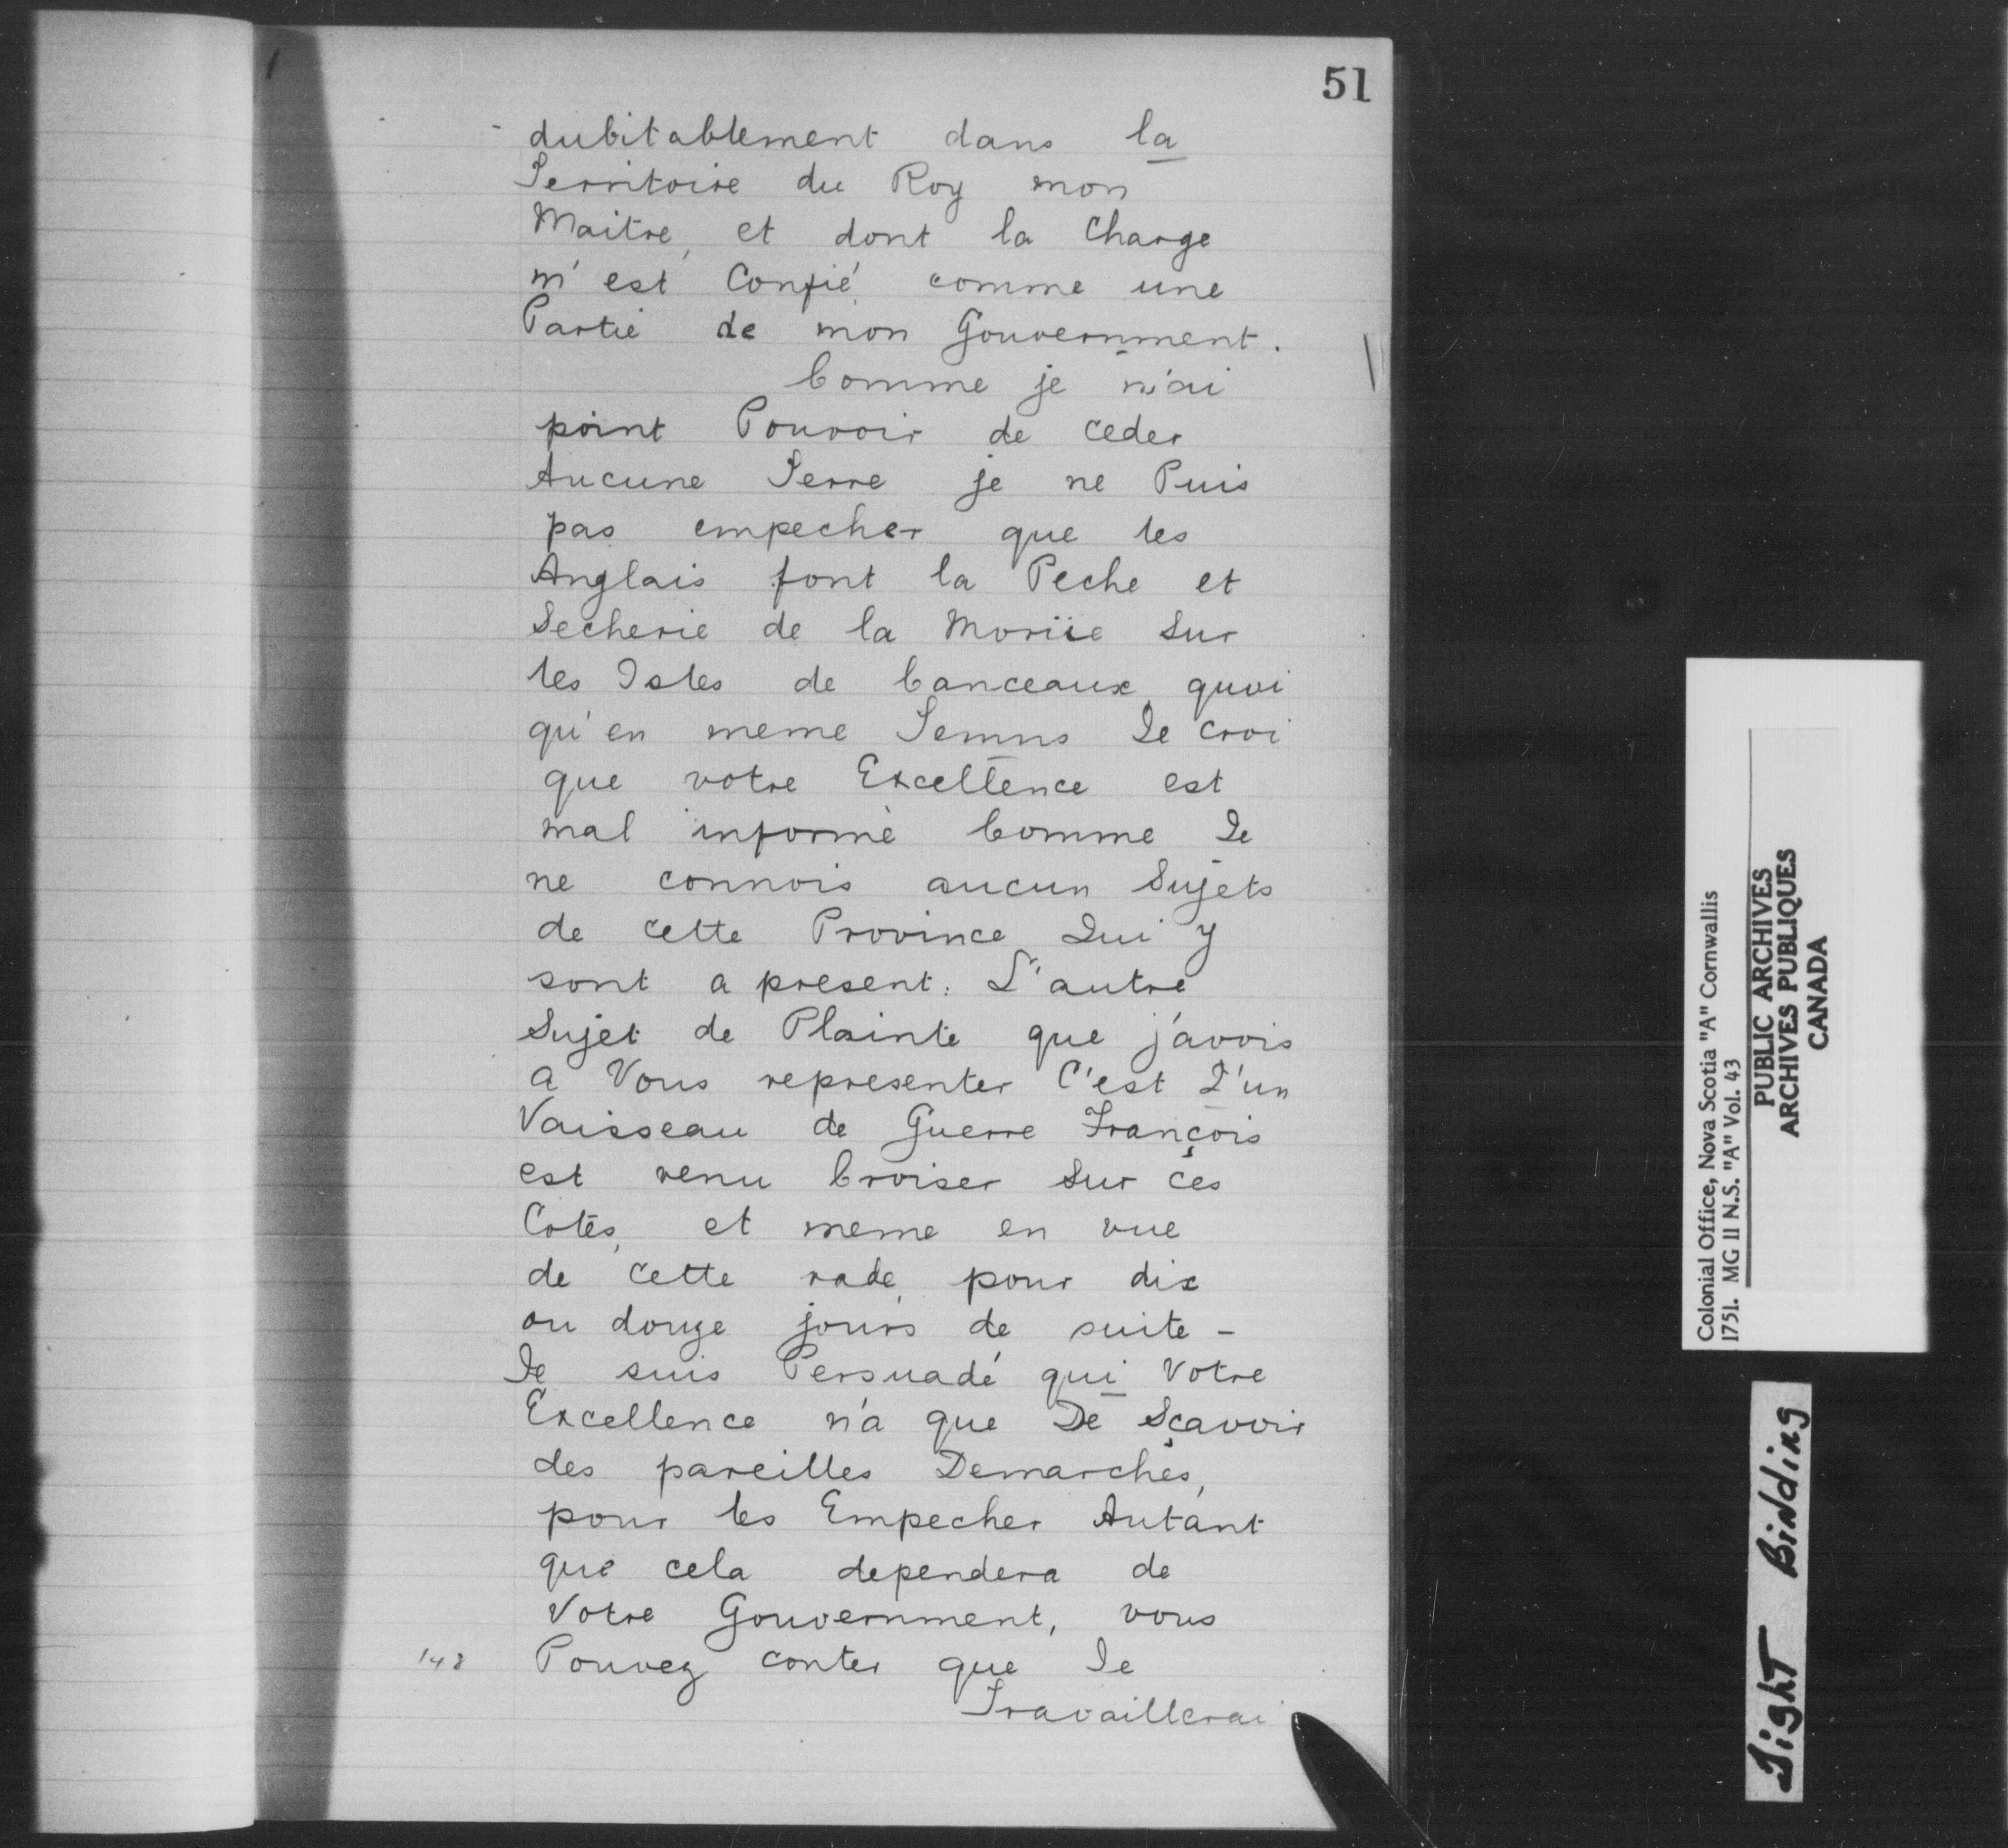 51
- dubitablement dans la
Territoire du Roy mon
Maitre, et dont la Charge
m'est Confié comme une
Partie de mon Gouvernment.
Comme je n'ai
point Pouvoir de ceder
Aucune Terre je ne Puis
pas empecher que les
Anglais font la Peche et
Secherie de la Moriie sur
les Isles de Canceaux, quoi
qu'en meme Temns Je croi
que votre Excellence est
mal informé Comme Je
ne connois aucun Sujets
de cette Province Qui y
sont a present. L'autre
Sujet de Plainte que j'avois
a Vous representer C'est Q'un
Vaisseau de Guerre François
est venu Croiser sur ces
Cotés, et meme en vue
de cette rade, pour dix
ou douze jours de suite -
Je suis Persuadé qui Votre
Excellence n'a que De Sçavoir
des pareilles Demarches,
pour les Empecher Autant
que cela dependera de
Votre Gouvernment, vous
148 Pouvez conter que Je
Travaillerai
Colonial Office, Nova Scotia "A" Cornwallis
1751. MG 11 N.S. "A" Vol. 43
PUBLIC ARCHIVES
ARCHIVES PUBLIQUES
CANADA
Tight Binding